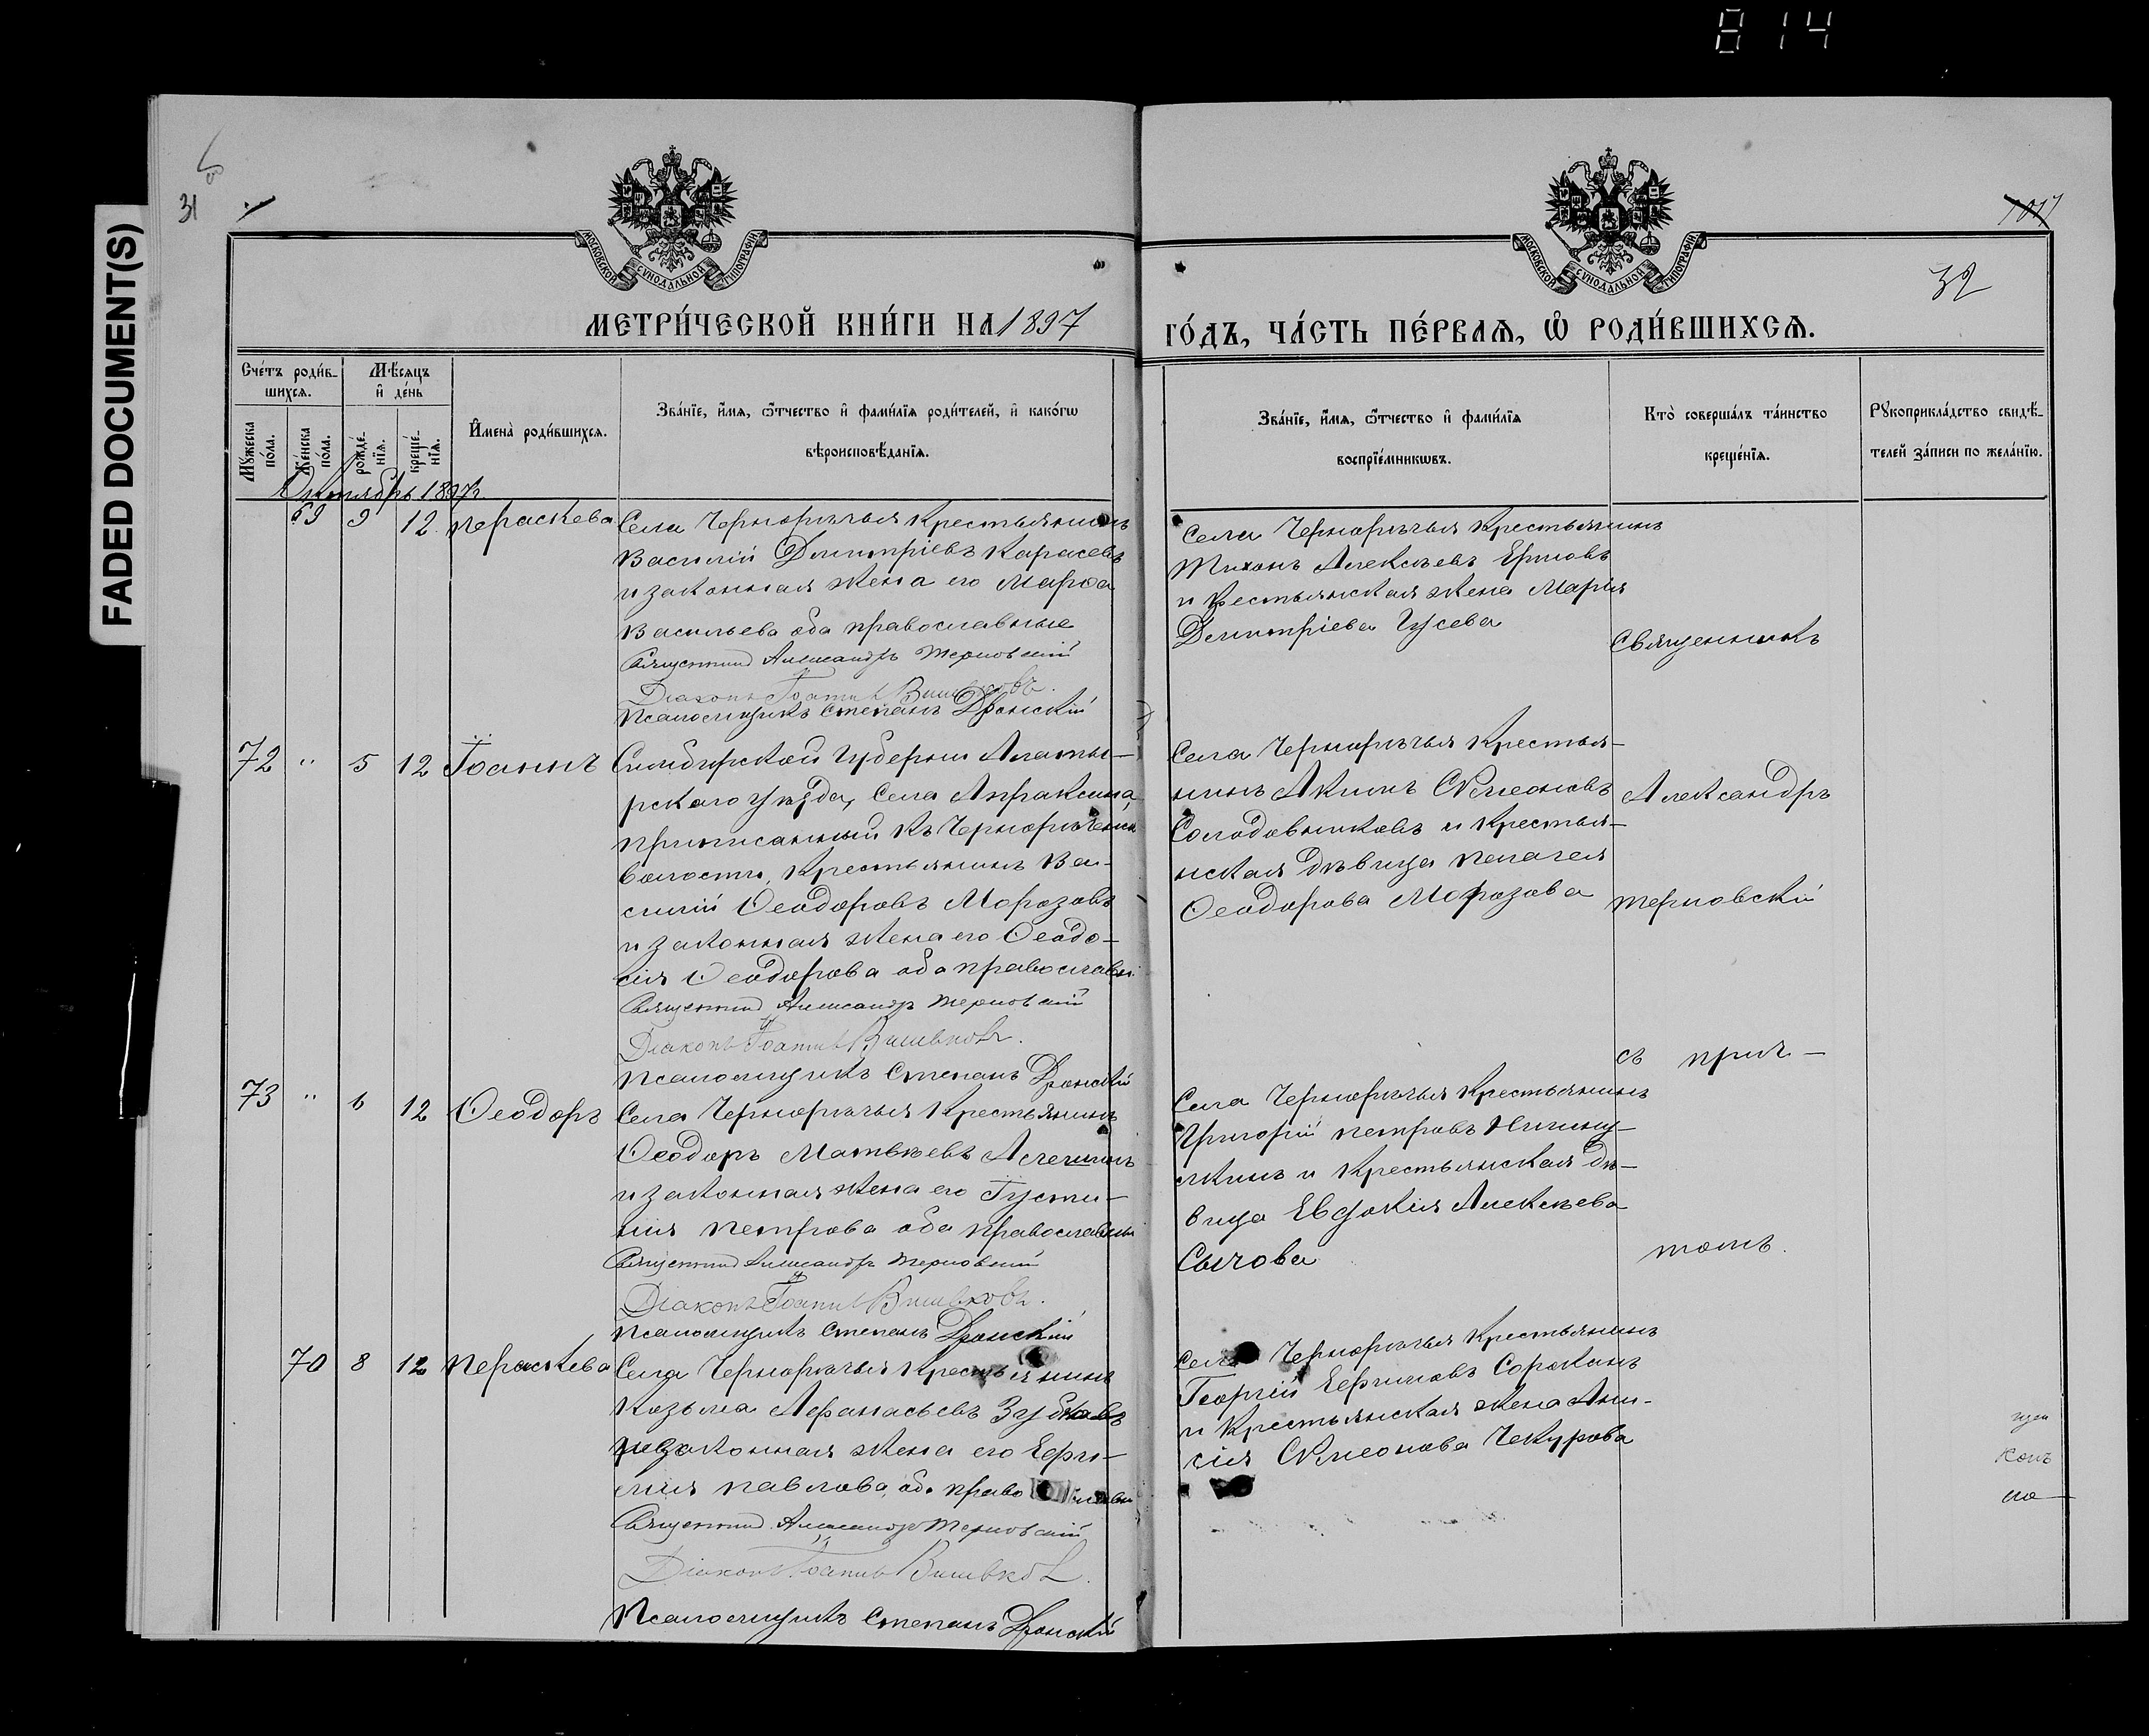 814
FADED DOCUMENT(S)
31
1017
32
МОСКОВСКОЙ СѴНОДАЛЬНОЙ ТИПОГРАФІИ
МОСКОВСКОЙ СѴНОДАЛЬНОЙ ТИПОГРАФІИ
МЕТРИ́ЧЕСКОЙ КНИ́ГИ НА 1897
ГО́ДЪ, ЧА́СТЬ ПЕ́РВАѦ, Ѡ҆ РОДИ́ВШИХСѦ.
Сче́тъ роди́в-
шихсѧ.
Мѣ́сѧцъ
и҆ де́нь
Мꙋ́жеска
по́ла.
Же́нска
по́ла.
рожде́-
нїѧ.
креще́-
нїѧ.
И҆мена̀ роди́вшихсѧ.
Зва́нїе, и҆́мѧ, ѻ҆́тчество и҆ фами́лїѧ роди́телей, и҆ како́гѡ
вѣроисповѣ́данїѧ.
Зва́нїе, и҆́мѧ, ѻ҆́тчество и҆ фами́лїѧ
воспрїе́мникѡвъ.
Кто̀ соверша́лъ та́инство
креще́нїѧ.
Рꙋкоприкла́дство свидѣ́-
телей за́писи по жела́нїю.
Октябрь 1897
69 9 12 Параскева
Села Чернорѣчья крестьянинъ
Василій Димитріевъ Карасевъ
и законная жена его Марѳа
Васильева оба православные
Священникъ Александръ Терновскій
Діаконъ Іоаннъ Вишвковъ.
Псаломщикъ Степанъ Дронскій
Села Чернорѣчья крестьянинъ
Тихонъ Алексѣевъ Ермовъ
и крестьянская жена Марія
Димитріева Гусева
Священникъ
72 " 5 12 Іоаннъ
Симбирской губерніи Алаты-
рскаго уѣзда, села Апраксина,
приписанный къ Чернорѣченск
волости, крестьянинъ Ва-
силій Ѳеодоровъ Морозовъ
и законная жена его Ѳеодо-
сія Ѳеодорова оба православн
Священникъ Александръ Терновскій
Діаконъ Іоаннъ Вишвковъ.
Псаломщикъ Степанъ Дронскій
Села Чернорѣчья крестья-
нинъ Акимъ Сѵмеоновъ
Солодовниковъ и крестья-
нская дѣвица Пелагея
Ѳеодорова Морозова
Александръ
Терновскій
съ прич-
73 " 6 12 Ѳеодоръ
Села Чернорѣчья крестьянинъ
Ѳеодоръ Матвѣевъ
и законная жена его Іусти-
нія Петрова оба православны
Священникъ Александръ Терновскій
Діаконъ Іоаннъ Вишвковъ.
Псаломщикъ Степанъ Дронскій
Села Чернорѣчья крестьянинъ
Григорій Петровъ
и крестьянская дѣ-
вица Евдокія Алексѣева
Сычова
томъ.
70 8 12 Параскева
Села Чернорѣчья крестьянинъ
Козьма Аѳанасьевъ Зубковъ
и законная жена его Ефи-
мія Павлова, оба право
Священникъ Александръ Терновскій
Діаконъ Іоаннъ Вишвковъ.
Псаломщикъ Степанъ Дронскій
Села Чернорѣчья крестьянинъ
Георгій Ефимовъ Сорокинъ
и крестьянская жена Ани-
сія Сѵмеонова Чекурова